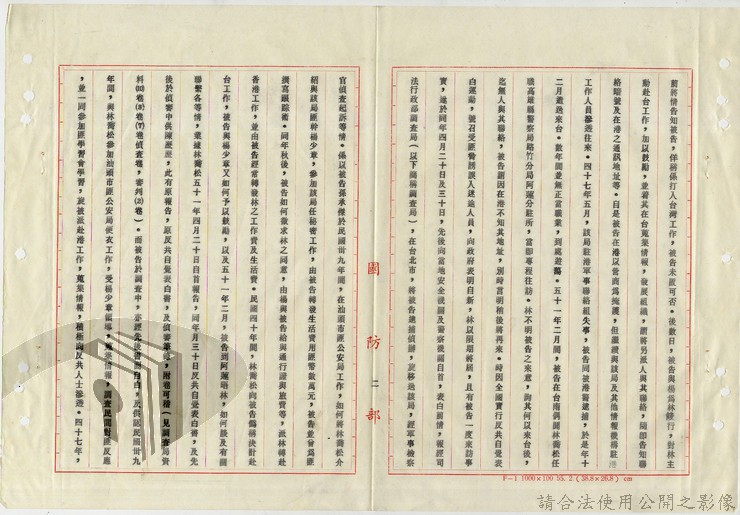 前將情告知被告，佯稱係打入台灣工作，被告未置可否。後數日，被告與楊為林餞行，對林主
動赴台工作，加以鼓勵，並着其在台蒐集情報，發展組織，謂將另派人與其聯絡，隨即告知聯
絡暗號及在港之通訊地址等。自是被告在港以營商為掩護，但繼續與該局及其他情報機構駐港
工作人員滲透往來。四十七年五月，該局駐港軍事聯絡組失事，被告同被港警逮捕，於是年十
二月遞送來台。數年間並無正當職業，到處遊蕩。五十一年二月間，被告在台南偶與林喬松任
職高雄縣警察局路竹分局阿蓮分駐所，當即專程往訪。林不明被告之來意，詢其何以來台後，
迄無人與其聯絡，被告謂因在港不知其地址，別時當明稍後將再來。時因全國實行反共自覺表
白運動，號召受匪脅誘誤入迷途人員，向政府表明自新，林以限期將屆，且有被告一度來訪事
實，遂於同年四月二十日及三十日，先後向當地安全機關及警察機關自首，表白前情，報經司
法行政部調查局（以下簡稱調查局），在台北市，將被告逮捕偵辦，旋移送該局，經軍事檢察
國防部
二
官偵查起訴等情。係以被告孫承謀於民國卅九年間，在汕頭市匪公安局工作，如何將林喬松介
紹與該局匪幹楊少章，參加該局任秘密工作，由被告轉發生活費用匪幣數萬元，被告並會為匪
撰寫跟踪術。同年秋後，被告如何徵求林之同意，由楊與被告給與通行證與旅費等，派林轉赴
香港工作，並由被告經常轉發林之工作費及生活費。民國四十年間，林喬松向被告僞稱決計赴
台工作，被告與楊少章又如何予以鼓勵，以及五十一年二月，被告到阿蓮晤林，如何談及有關
聯繫各等情，業據林喬松五十一年四月二十日自首報告，同年月三十日反共自覺表白書，及先
後於偵審中供證歷歷，此有原報告，原反共自覺表白書，及偵審筆錄，附卷可稽（見調查局資
料㈣卷⑶卷⑺卷偵查卷，審判⑵卷）。而被告於調查中，亦經先後書面自白，及供認民國卅九
年間，與林喬松參加汕頭市匪公安局便衣工作，受楊少章領導，蒐集情報，調查民間對匪反應
，並一同參加匪學習會學習，旋被派赴港工作，蒐集情報，積極向反共人士滲透。四十七年，
F－1 1000×100 55. 2（38.8×26.8）cm
請合法使用公開之影像